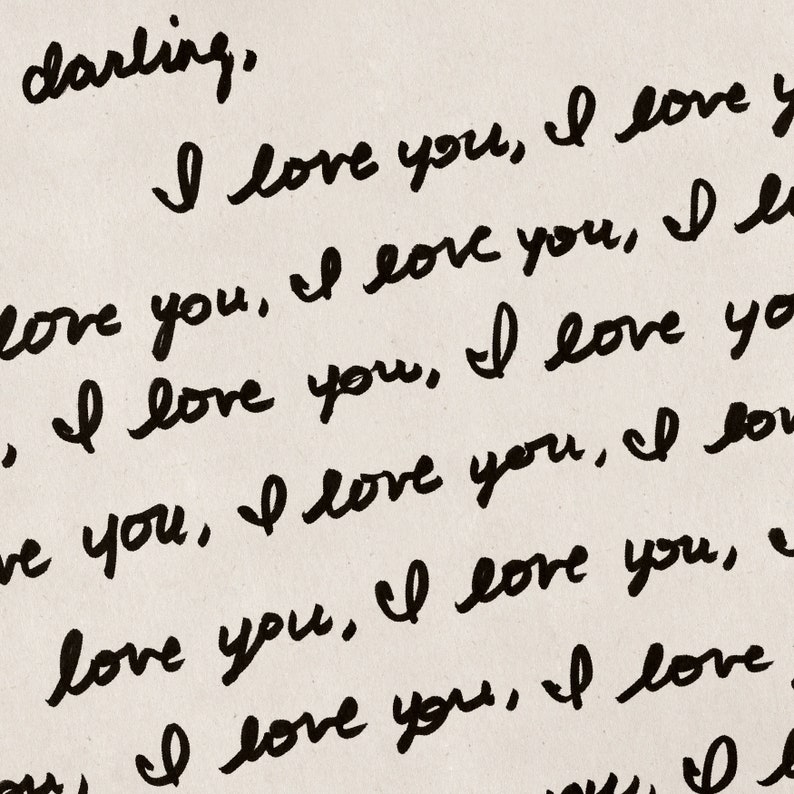 darling,
I love you, I love y
love you, I love you, I lo
, I love you, I love yo
ve you, I love you, I lov
love you, I love you,
ou, I love you, I love
you, I lo